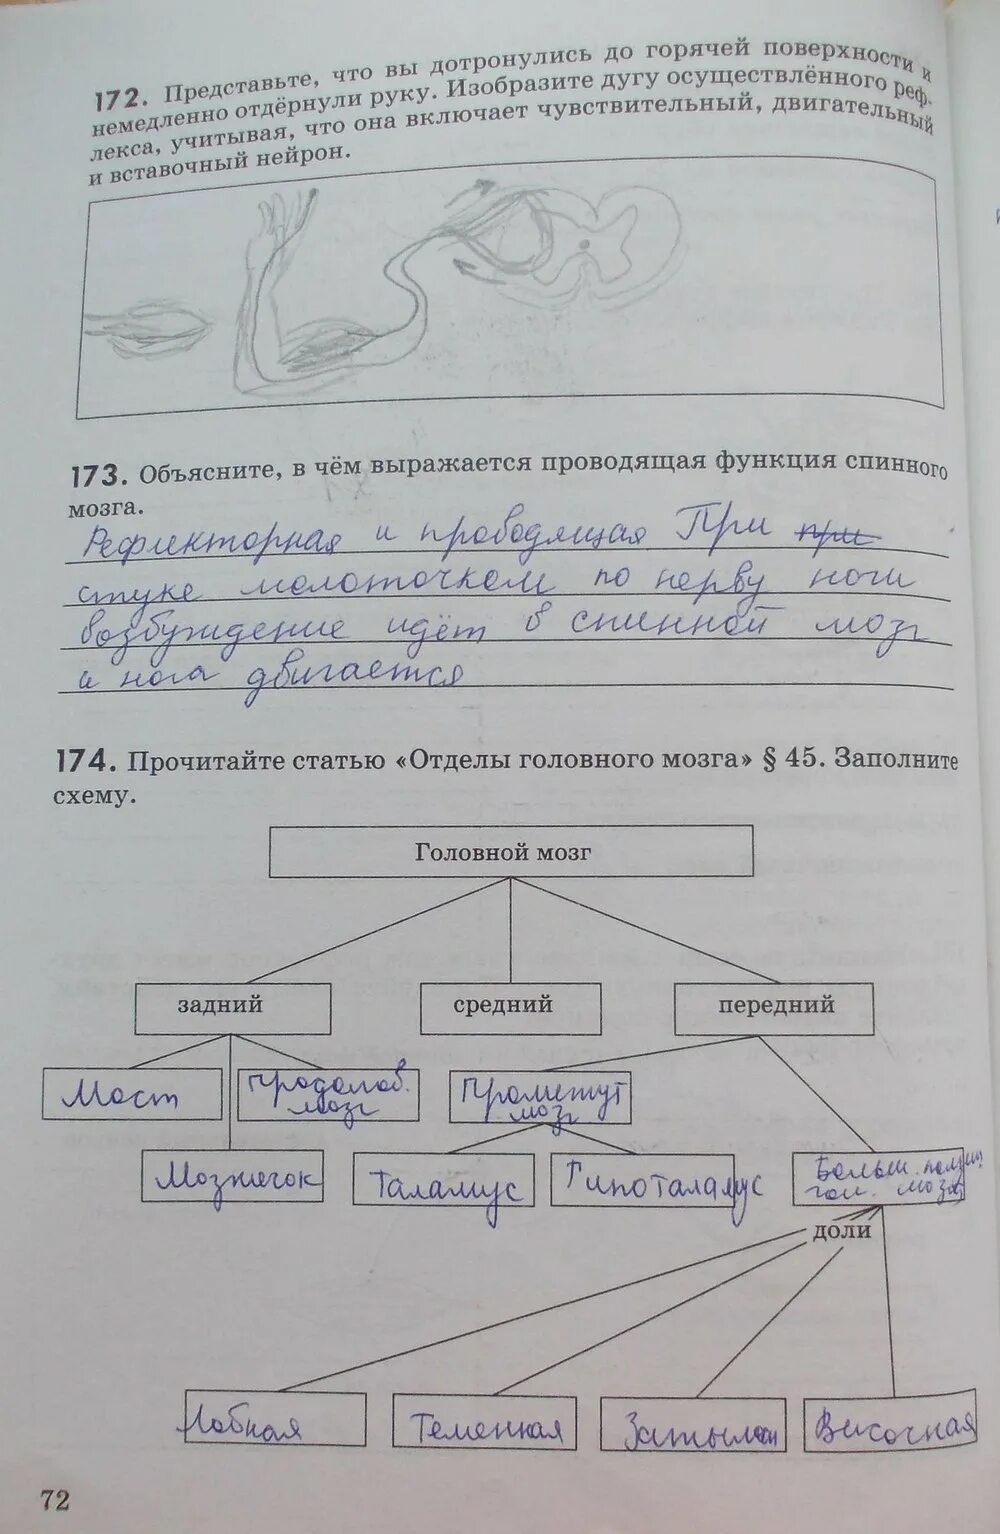 172. Представьте, что вы дотронулись до горячей поверхности и
немедленно отдёрнули руку. Изобразите дугу осуществлённого реф-
лекса, учитывая, что она включает чувствительный, двигательный
и вставочный нейрон.
173. Объясните, в чём выражается проводящая функция спинного
мозга.
Рефлекторная и проводящая При при
стуке молоточком по нерву ноги
возбуждение идёт в спинной мозг
и нога двигается
174. Прочитайте статью «Отделы головного мозга» § 45. Заполните
схему.
Головной мозг
задний средний передний
Мост Продолгов. Промежут
мозг мозг
Мозжечок Таламус Гипоталамус Больш. полуш
гол. мозга
доли
Лобная Теменная Затылочн Височная
72